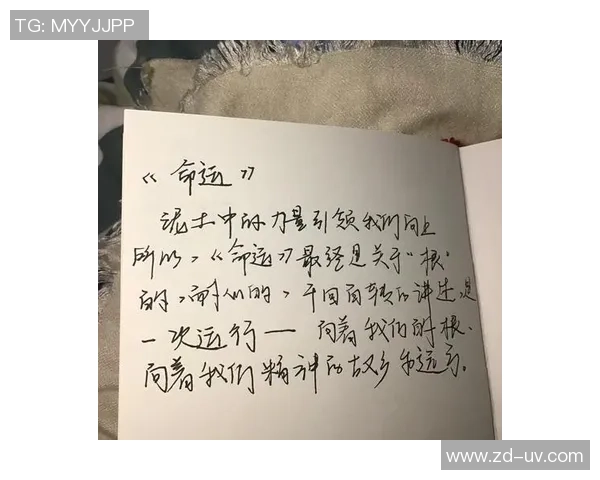 TG: MYYJJPP
《命运》
泥土中的力量引领我们向上
所以,《命运》最终是关于“根”
的,耐人的,千回百转的讲述,是
一次运行——向着我们的根、
向着我们精神的故乡和远方。
www.zd-uv.com